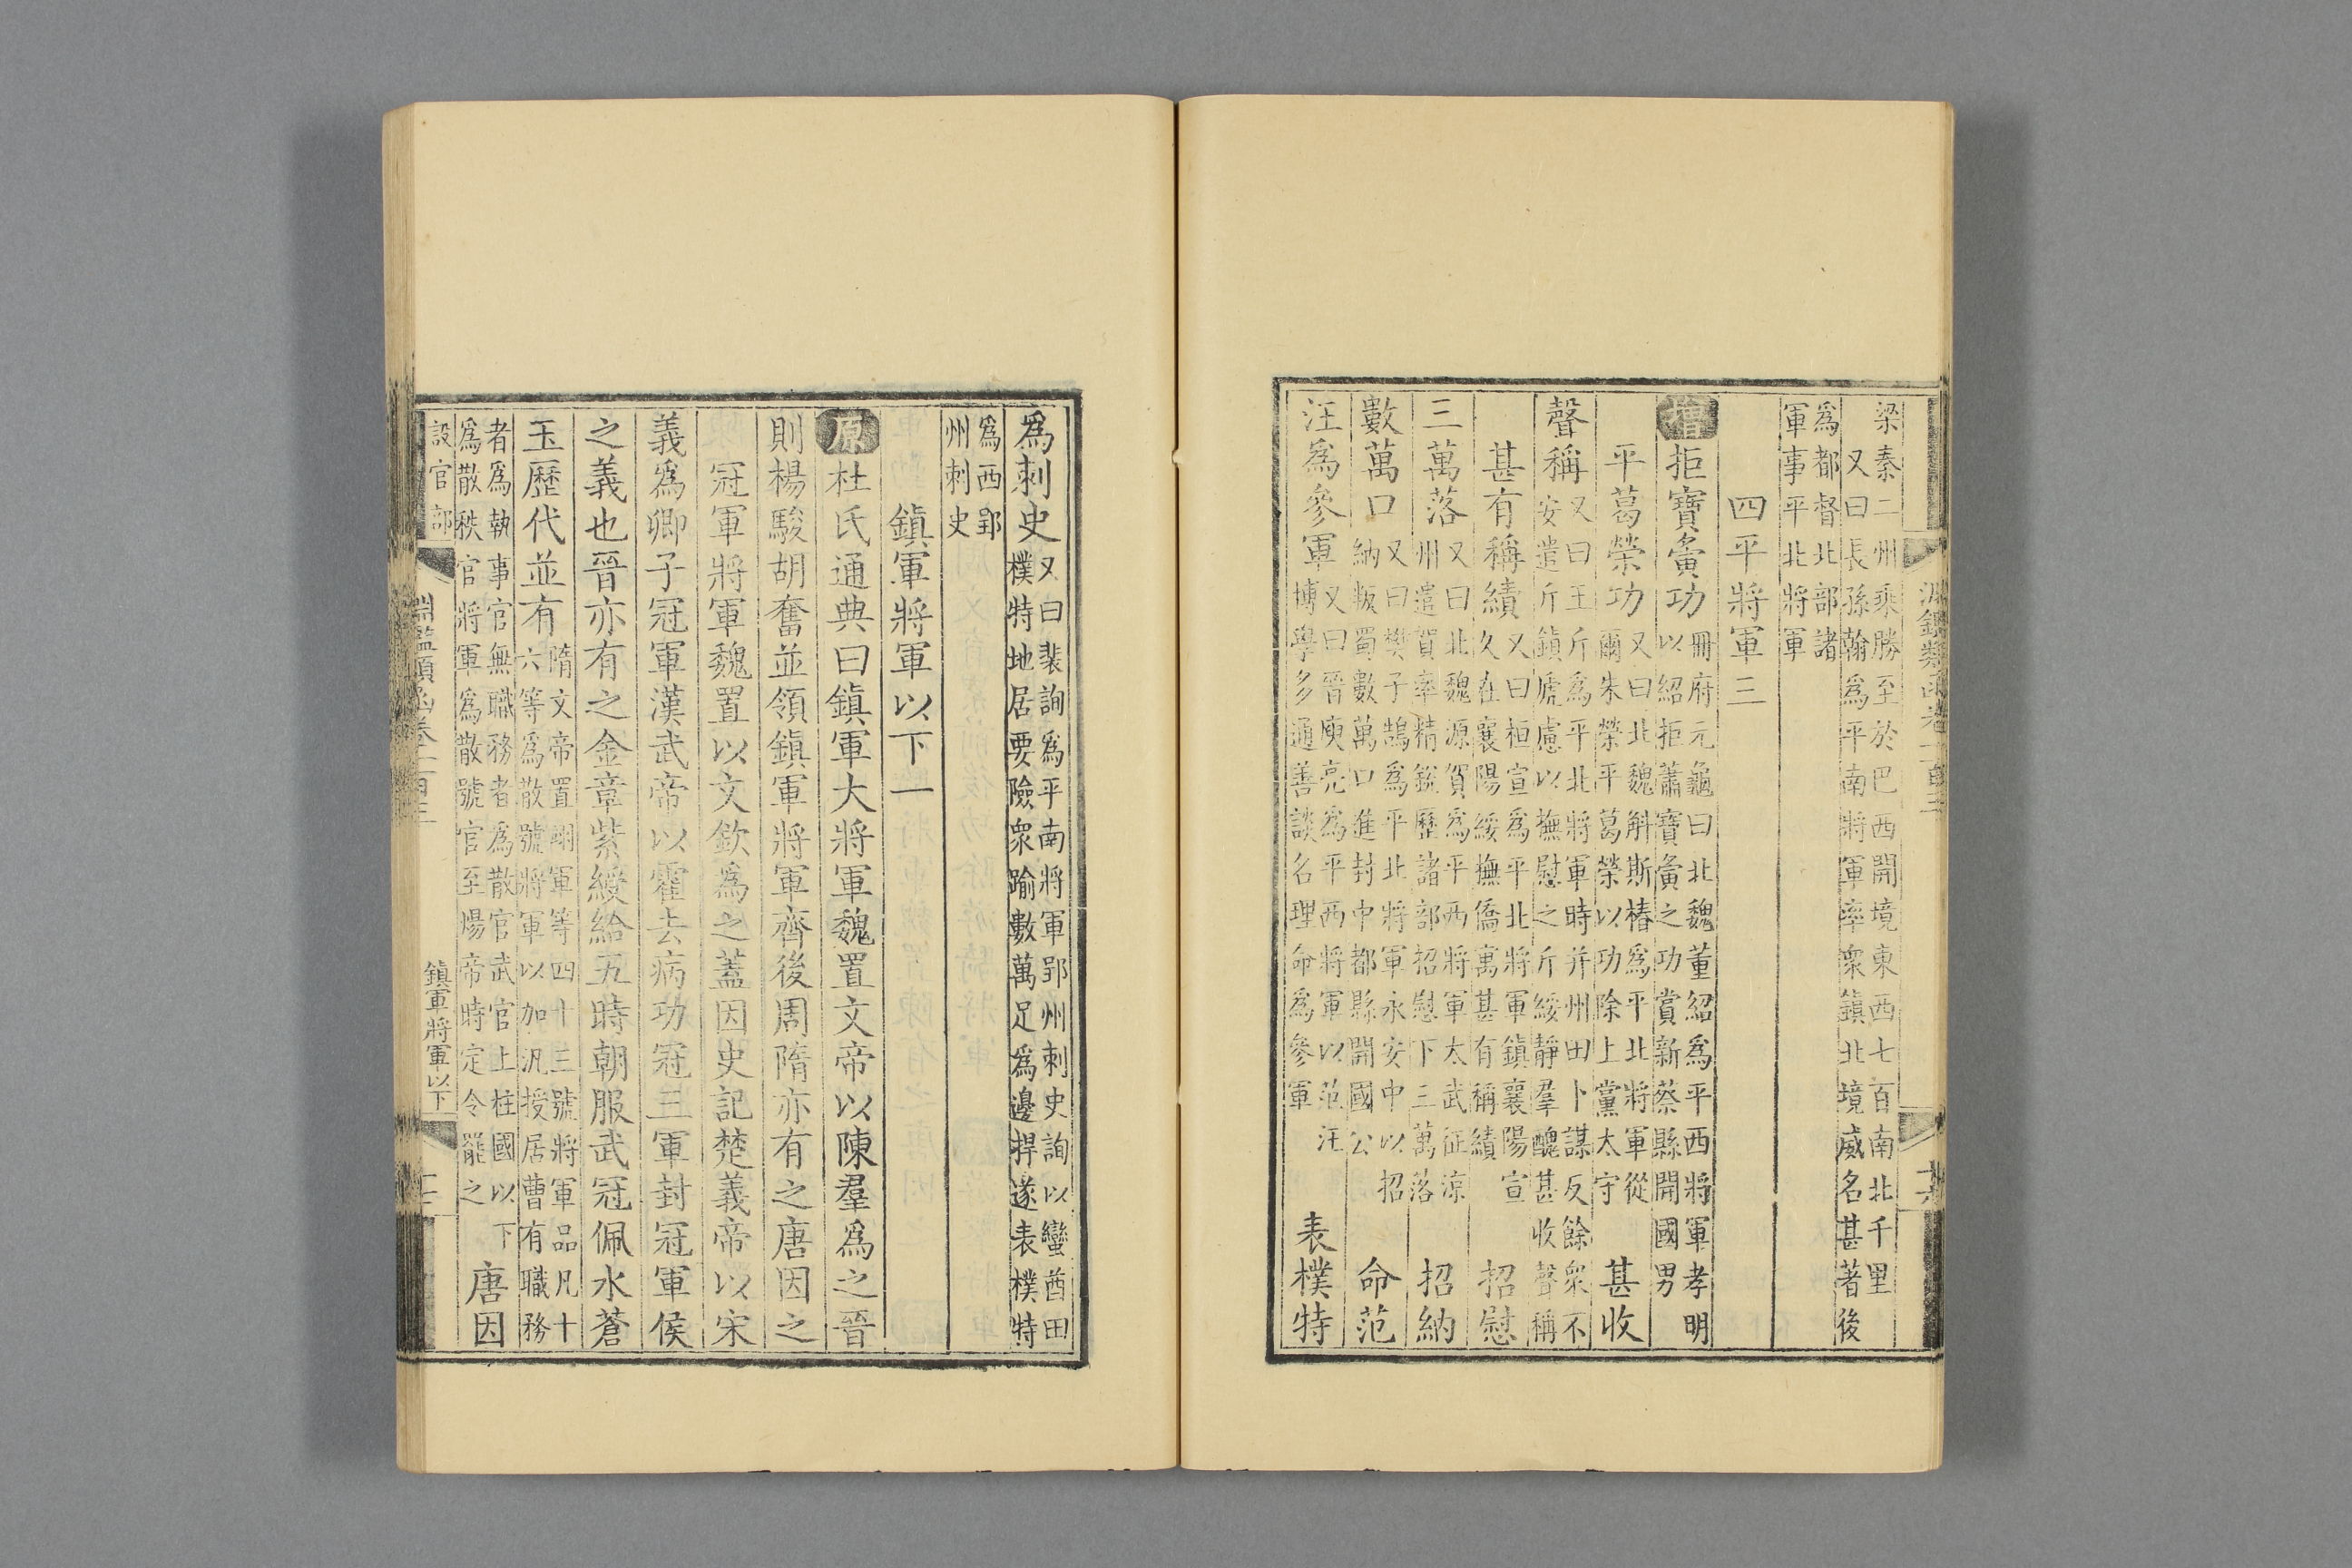 梁秦二州乘勝至於巴西開境東西七百南北千里
又曰長孫翰爲平南將軍率衆鎮北境威名甚著後
爲都督北部諸
軍事平北將軍
四平將軍三
增 拒寶夤功 冊府元龜曰北魏董紹爲平西將軍孝明
以紹拒蕭寶夤之功賞新蔡縣開國男
平葛榮功 又曰北魏斛斯椿爲平北將軍從
爾朱榮平葛榮以功除上黨太守 甚收
聲稱 又曰王斤爲平北將軍時并州田卜謀反餘衆不
安遣斤鎮慮以撫慰之斤綏靜羣醜甚收聲稱
甚有稱績 又曰桓宣爲平北將軍鎮襄陽宣
久在襄陽綏撫僑寓甚有稱績 招慰
三萬落 又曰北魏源賀爲平西將軍太武征涼
州遣賀率精銳歷諸部招慰下三萬落 招納
數萬口 又曰樊子鵠爲平北將軍永安中以招
納叛蜀數萬口進封中都縣開國公 命范
汪爲參軍 又曰晉庾亮爲平西將軍以范汪
博學多通善談名理命爲參軍 表樸特
爲刺史 又曰裴詢爲平南將軍郢州刺史詢以蠻酋田
樸特地居要險衆踰數萬足爲邊捍遂表樸特
爲西郢
州刺史
鎮軍將軍以下一
原 杜氏通典曰鎮軍大將軍魏置文帝以陳羣爲之晉
則楊駿胡奮並領鎮軍將軍齊後周隋亦有之唐因之
冠軍將軍魏置以文欽爲之蓋因史記楚義帝以宋
義爲卿子冠軍漢武帝以霍去病功冠三軍封冠軍侯
之義也晉亦有之金章紫綬給五時朝服武冠佩水蒼
玉歷代並有 隋文帝置翊軍等四十三號將軍品凡十
六等爲散號將軍以加汎授居曹有職務
者爲執事官無職務者爲散官武官上柱國以下
爲散秩官將軍爲散號官至煬帝時定令罷之 唐因
設官部
淵鑑類函卷
鎮軍將軍以下